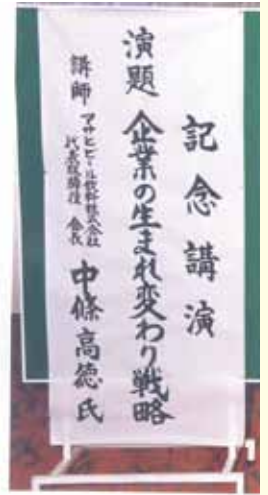 記念講演
演題 企業の生まれ変わり戦略
講師 アサヒビール飲料株式会社 代表取締役 会長 中條高德氏
1